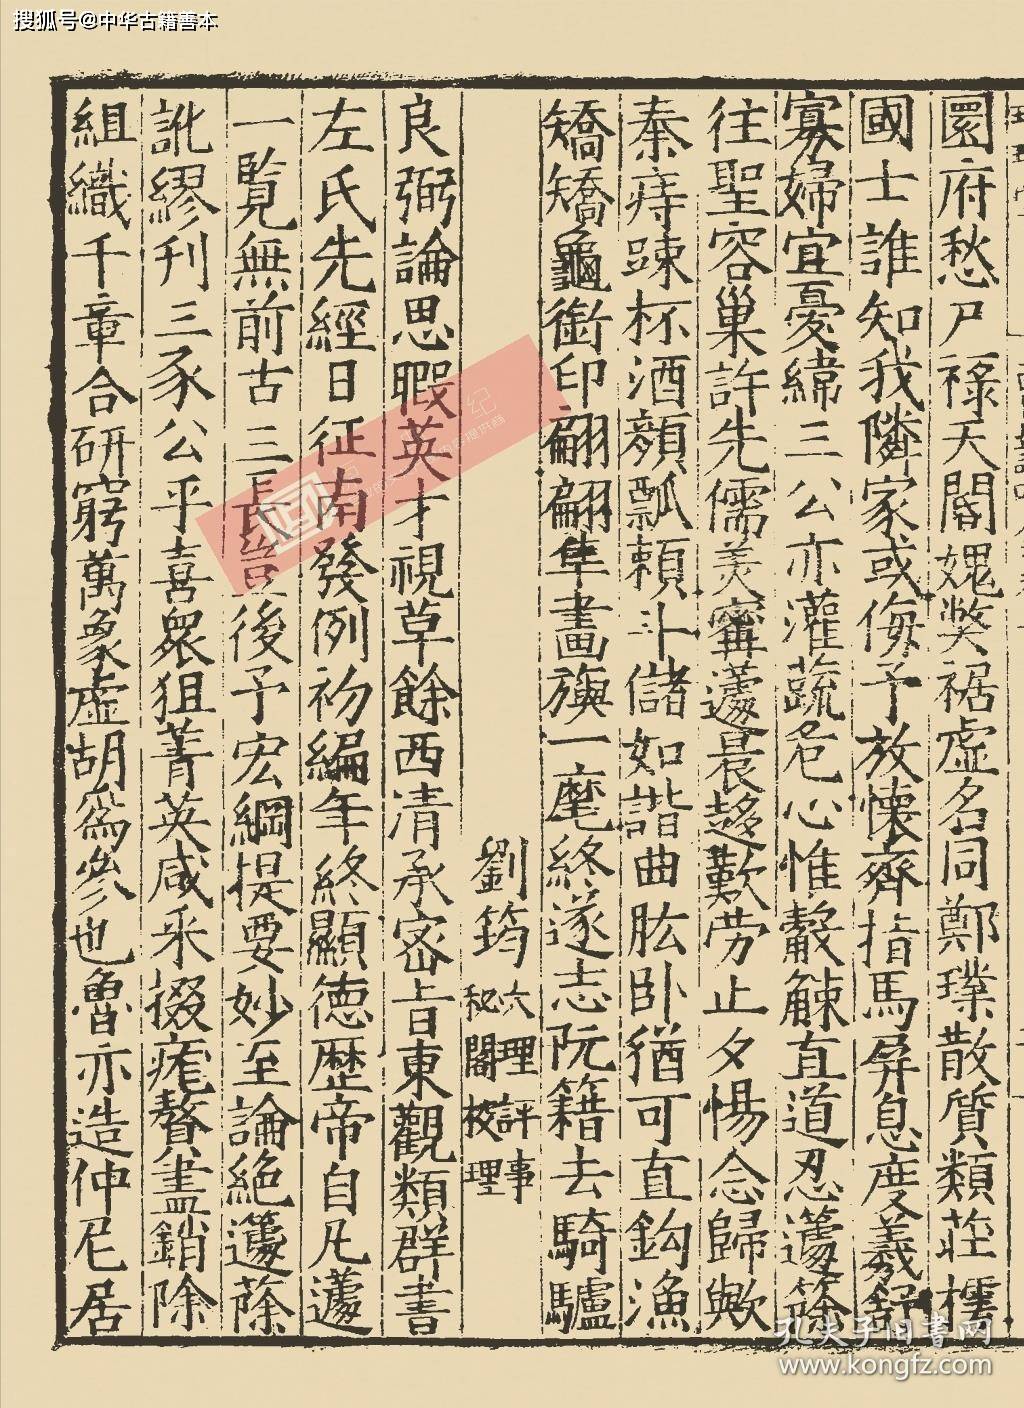 搜狐号@中华古籍善本
圜府愁尸祿天閽媿獎裾虛名同鄭璞散質類莊樗
國士誰知我隣家或侮予放懷齊指馬屏息度義舒
寡婦宜憂緯三公亦灌蔬危心惟觳觫直道忍籧篨
往聖容巢許先儒美甯蘧晨趍歎勞止夕惕念歸歟
秦痔踈杯酒顏瓢頼斗儲如諧曲肱卧猶可直鈎漁
矯矯龜銜印翩翩隼畫旟一麾終遂志阮籍去騎驢
劉筠 大理評事 秘閣校理
良弼論思暇英才視草餘西清承密旨東觀類群書
左氏先經日征南發例初編年終顯德歷帝自凡蘧
一覧無前古三長豈後予宏綱提要妙至論絶籧蒢
訛繆刊三豕公乎喜衆狙菁英咸采掇疣贅盡銷除
組織千章合研窮萬象虛胡為參也魯亦造仲尼居
孔夫子旧書网
www.kongfz.com